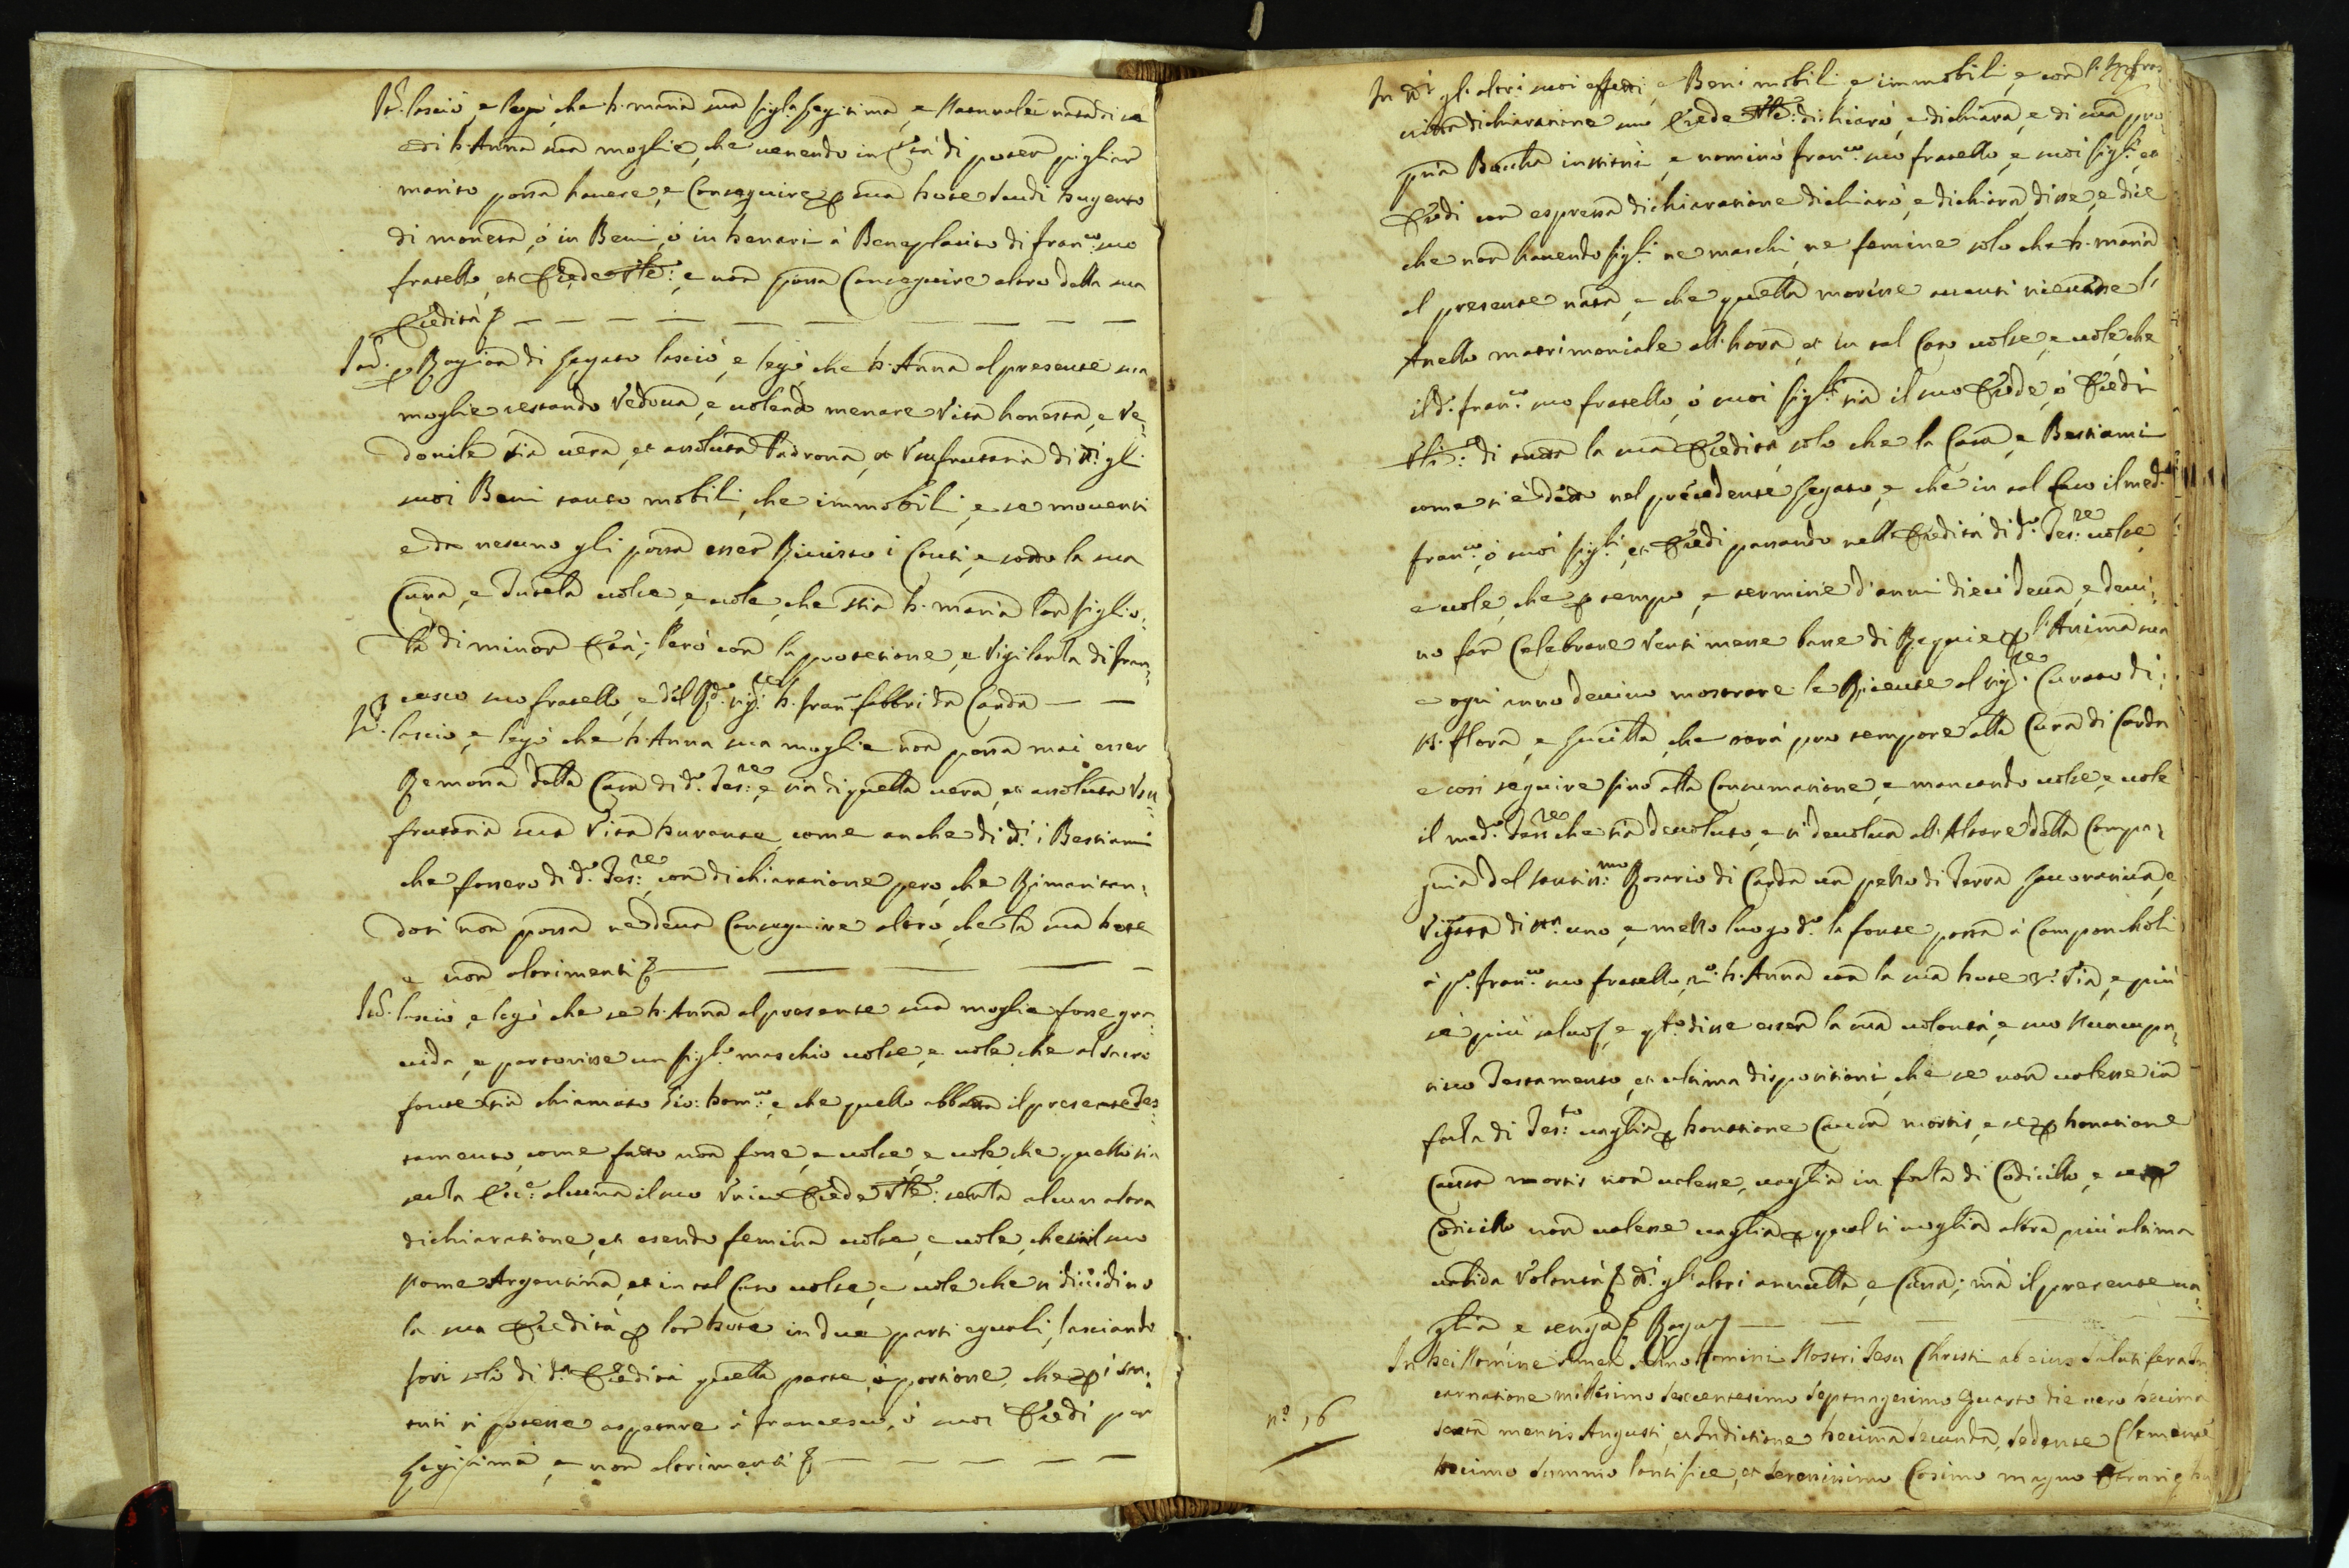 It. lasciò, e legò, che D. Maria sua figl.a legitima, e Naturale nata di se
e di D. Anna sua moglie, che venendo in Età di poter pigliar
marito possa havere, e Conseguire p sua Dote scudi Dugento
di moneta, ò in Beni, ò in Denari à Beneplacito di Fran.co suo
fratello, et Erede Vle: e non possa Conseguire altro della sua
Eredità &
Itd. p Ragion di Legato lasciò, e legò che D. Anna al presente sua
moglie restando Vedova, e volendo menare Vita honesta, e Ve:
dovile sia vera, et assoluta Padrona, et Usufrutaria di tt.i gli
suoi Beni tanto mobili, che immobili, e se moventi
e da nesuno gli possa esser Rivisto i Conti, e sotto la sua
Cura, e Tutela volse, e vole, che stia D. Maria lor figlio:
la di minor Età; Però con la protetione, e Vigilanza di Fran:
cesco suo fratello, e del R.do sig.re D. Fran Fabbri da Carda
It. lasciò, e legò che D. Anna sua moglie non possa mai esser
Remossa dalla Casa di d.o Tes.re, e sia di quella vera, et assoluta Usu:
frutaria sua Vita Durante, come anche di tt.i i Bestiami
che fossero di d.o Tes.re, con dichiaratione però, che Rimaritan:
dosi non possa ne deva Conseguire altro, che la sua Dote
e non altrimenti &
Itd. lasciò, e legò che se D. Anna al presente sua moglie fosse gra:
vida, e partorisse un figl.o maschio volse, e vole, che al sacro
fonte sia chiamato Gio: Dom.co, e che quello abbassa il presente Tes:
tamento, come fatto non fosse, e volse, e vole, che quello sia
senza Ecc.e alcuna il suo Unico Erede Vle: senza alcun altra
dichiaratione, et esendo femina volse, e vole, che sia il suo
Nome Argentina, et in tal Caso volse, e vole che si dividino
la sua Eredità p lor Dote in due parti eguali, lasciando
fori solo di d.a Eredità quella parte, ò portione, che p i sta:
tuti si potesse aspetare à Francesco, ò suoi Eredi per
Legitima, e non altrimenti &
In tt.i gl'altri suoi effetti, e Beni mobili, e immobili, e con
dichiaratione suo Erede Vle: dichiarò, e dichiara, e di sua pro:
pria Boccha instituì, e nominò Fran.co suo fratello, e suoi figl.i, et
Eredi con espressa dichiaratione dichiarò, e dichiara, disse, e dice
che non havendo figl.i ne maschi, ne femine solo che D. Maria
al presente nata, e che quella morisse avanti ricevesse l'
Anello matrimoniale all'hora, et in tal Caso volse, e vole, che
il d.o Fran.co suo fratello, ò suoi figl.i sia il suo Erede, ò Eredi
Vli: di tutta la sua Eredità, solo che la Casa, e Bestiami
come si è detto nel precedente Legato, e che in tal Caso il med.o
Fran.co, ò suoi figl.i, et Eredi pasando nell'Eredità di d.o Tes.re volse
e vole, che p tempo, e termine d'anni dieci deva, e devi:
no far Celebrare Venti messe basse di Requie p l'Anima sua
e ogni anno devino mostrare le Ricevute al sig.re Curato di
S. Flora, e Lucilla, che sarà pro tempore alla Cura di Carda
e così seguire fino alla Consumatione, e mancando volse, e vole
il med.o Tes.re che sia devoluto, e si devolva all'Altare della Compa:
gnia del Santis.mo Rosario di Carda un pezzo di Terra Lavorativa, e
Vigata di st.a uno, e mezzo luogo d.o la fonte posta à Camponcholi
à p.o Fran.co suo fratello, 2.o D. Anna con la sua Dote 3.o Via, e più
sè più salvo &, e q.to disse essere la sua volontà, e suo Nuncupa:
tivo Testamento, et ultima dispositione, che se non volesse in
forza di Tes.to vaglia p Donatione Causa mortis, e se p Donatione
Causa mortis non valesse, vaglia in forza di Codicillo, e se p
Codicillo non valesse vaglia p qual si voglia altra più ultima
valida Volontà & tt.i gl'altri annulla, e Cassa; mà il presente va:
glia, e tenga & Rogay
In Dei Nomine Amen Anno Domini Nostri Jesu Christi ab eius salutifera In
carnatione millesimo sexcentesimo septuagesimo Quarto die vero Decima
n.o 16
sexta mensis Augusti, et Indictione Decima secunda, sedente Clemente
Decimo Summo Pontifice, et Serenissimo Cosimo magno Etrurię Du